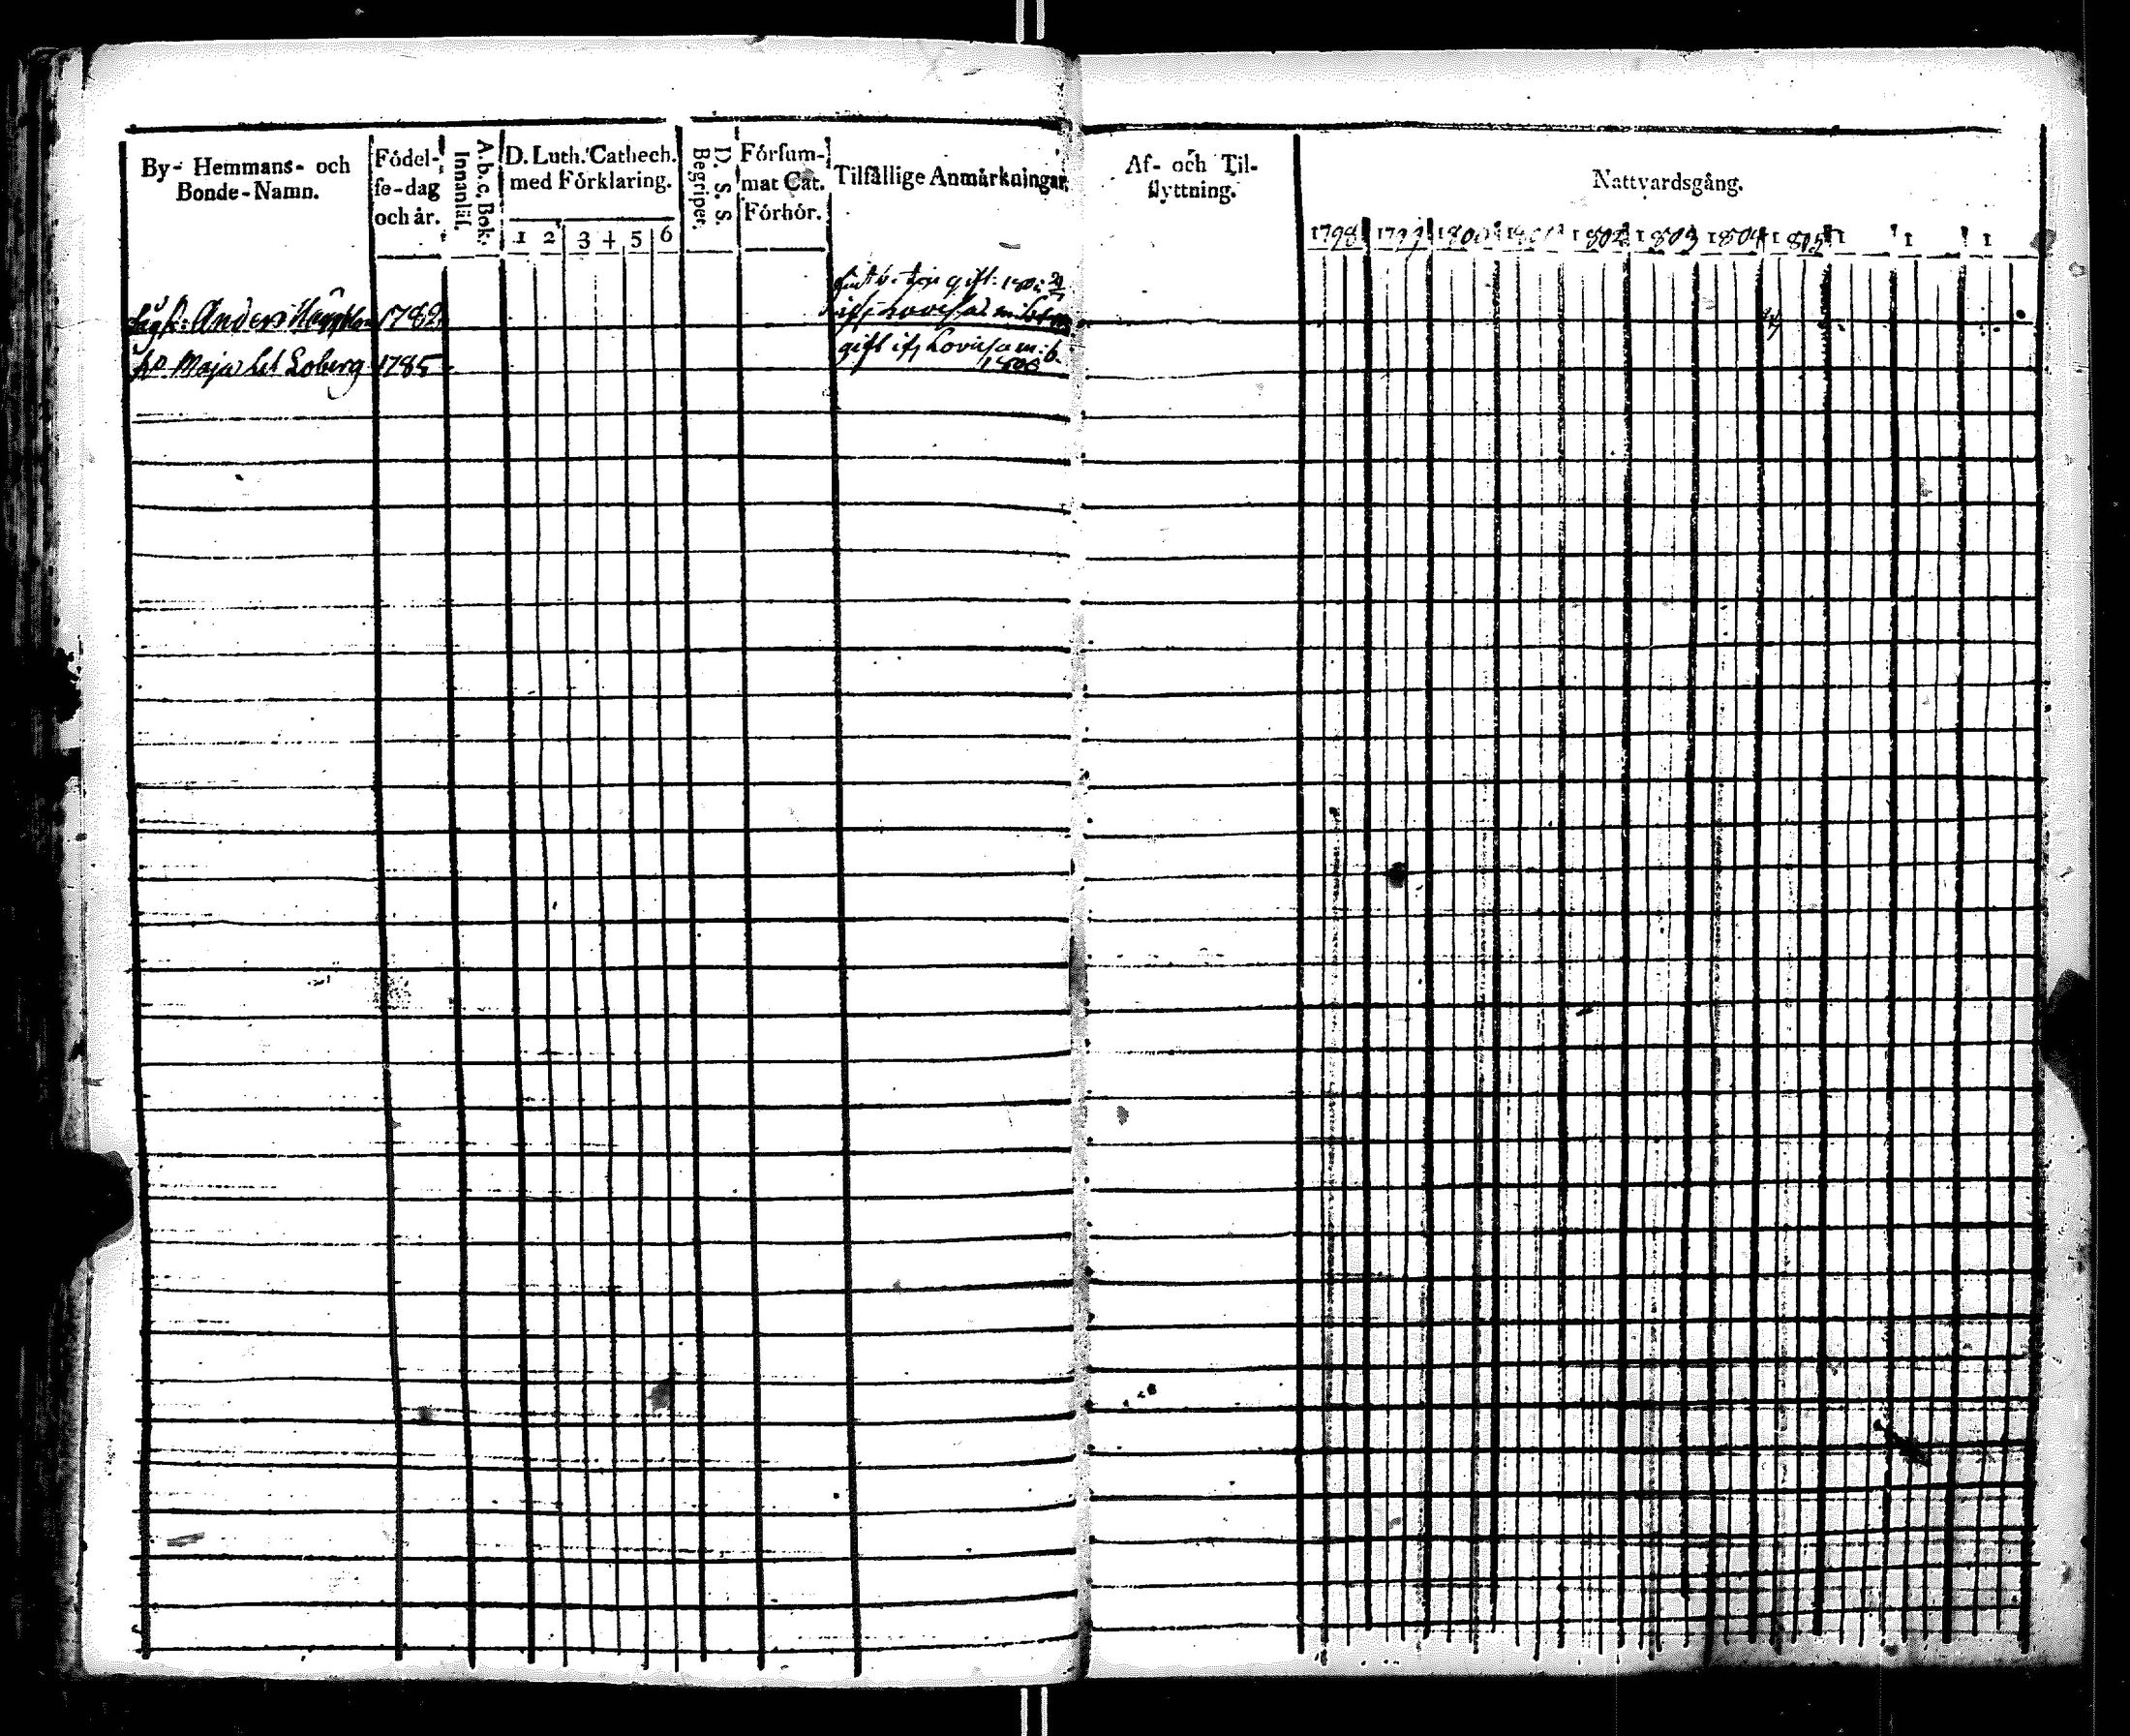 By- Hemmans- och
Bonde-Namn.
Födel-
se-dag
och år.
A. b. c. Bok.
Innanläs.
D. Luth. Cathech.
med Förklaring.
1 2 3 4 5 6
D. S. S.
Begriper.
Försum-
mat Cat.
Förhör.
Tilfällige Anmärkningar.
Af- och Til-
flyttning.
Nattvardsgång.
1798 1799 1800 1801 1802 1803 1804 1805 1 1 1
gift
Anders 1782
Maja Loberg 1785
gift Lovisa
1806